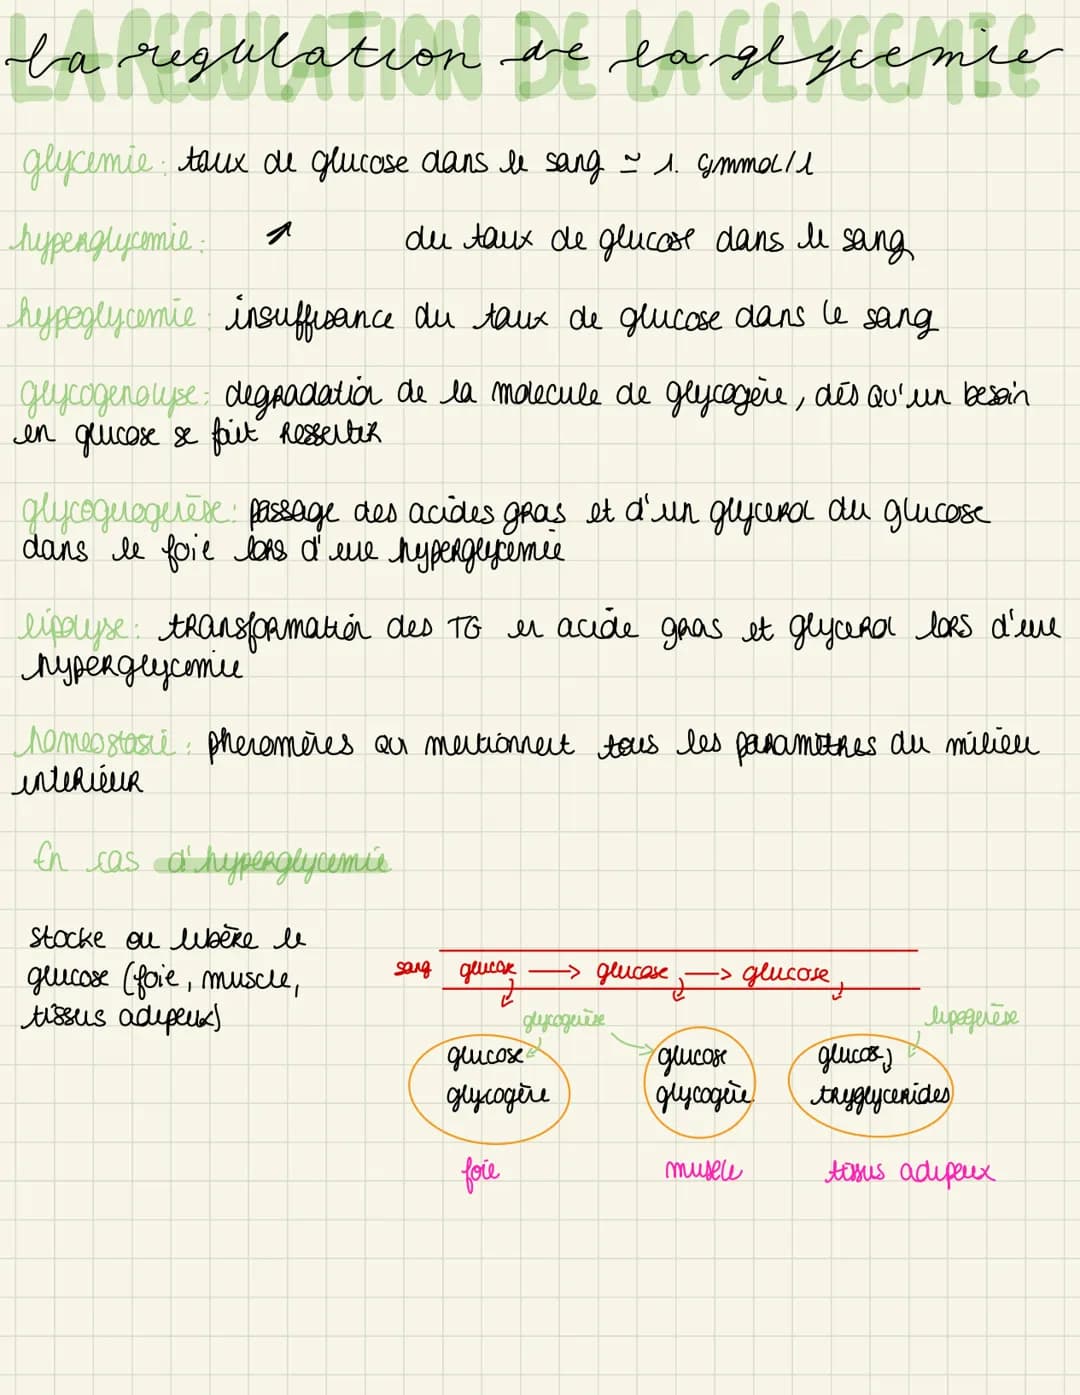 LA REGULATION DE LA GLYCEMIE
la regulation de la glycemie
glycemie: taux de glucose dans le sang ≃ 1. gmmol/l
hyperglycemie: ↗ du taux de glucose dans le sang
hypoglycemie: insuffisance du taux de glucose dans le sang
glycogenolyse: degradation de la molecule de glycogène, dés qu'un besoin
en glucose se fait ressentir
passage des acides gras et d'un glycerol du glucose
dans le foie lors d'une hyperglycemie
lipolyse: transformation des TG en acide gras et glycerol lors d'une
hyperglycemie
homeostasie: phenomènes qui tous les paramètres du milieu
interiéur
En cas d'hyperglycemie
stocke ou libère le
glucose (foie, muscle,
tissus adipeux)
sang glucose → glucose → glucose
glycogenèse lipogenèse
glucose glucose glucose
glycogène glycogène tryglycerides
foie muscle tissus adipeux